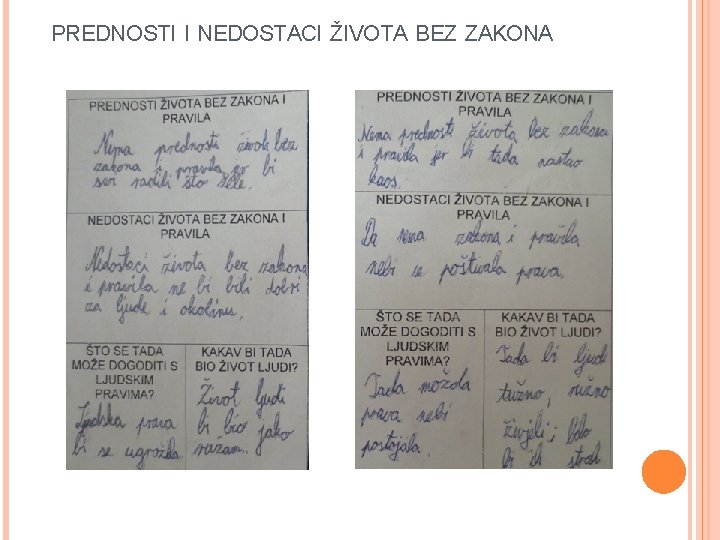 PREDNOSTI I NEDOSTACI ŽIVOTA BEZ ZAKONA
PREDNOSTI ŽIVOTA BEZ ZAKONA I
PRAVILA
Nema prednosti života bez
zakona i pravila jer bi
svi radili što žele.
NEDOSTACI ŽIVOTA BEZ ZAKONA I
PRAVILA
Nedostaci života bez zakona
i pravila ne bi bili dobri
za ljude i okolinu.
ŠTO SE TADA
MOŽE DOGODITI S
LJUDSKIM
PRAVIMA?
Ljudska prava
bi se ugrozila
KAKAV BI TADA
BIO ŽIVOT LJUDI?
Život ljudi
bi bio jako
ružan.
PREDNOSTI ŽIVOTA BEZ ZAKONA I
PRAVILA
Nema prednosti života bez zakona
i pravila jer bi tada nastao
kaos.
NEDOSTACI ŽIVOTA BEZ ZAKONA I
PRAVILA
Da nema zakona i pravila
nebi se poštivala prava.
ŠTO SE TADA
MOŽE DOGODITI S
LJUDSKIM
PRAVIMA?
Tada možda
prava nebi
postojala.
KAKAV BI TADA
BIO ŽIVOT LJUDI?
Tada bi ljudi
tužno, ružno
živjeli; bilo
bi ih strah